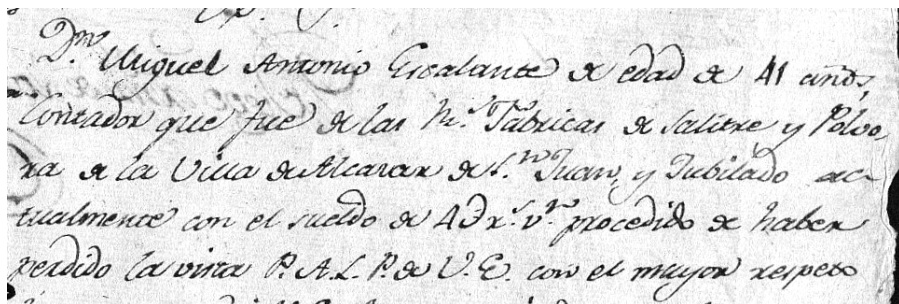 Dn. Miguel Antonio Escalante de edad de 41 años,
Contador que fue de las Rs. Fabricas de Salitre y Polvo,
ra de la Villa de Alcazar de Sn. Juan, y Jubilado ac-
tualmente con el sueldo de 4D rs. vn. procedido de haber
perdido la vista P. A. L. P. de V. E. con el mayor respeto